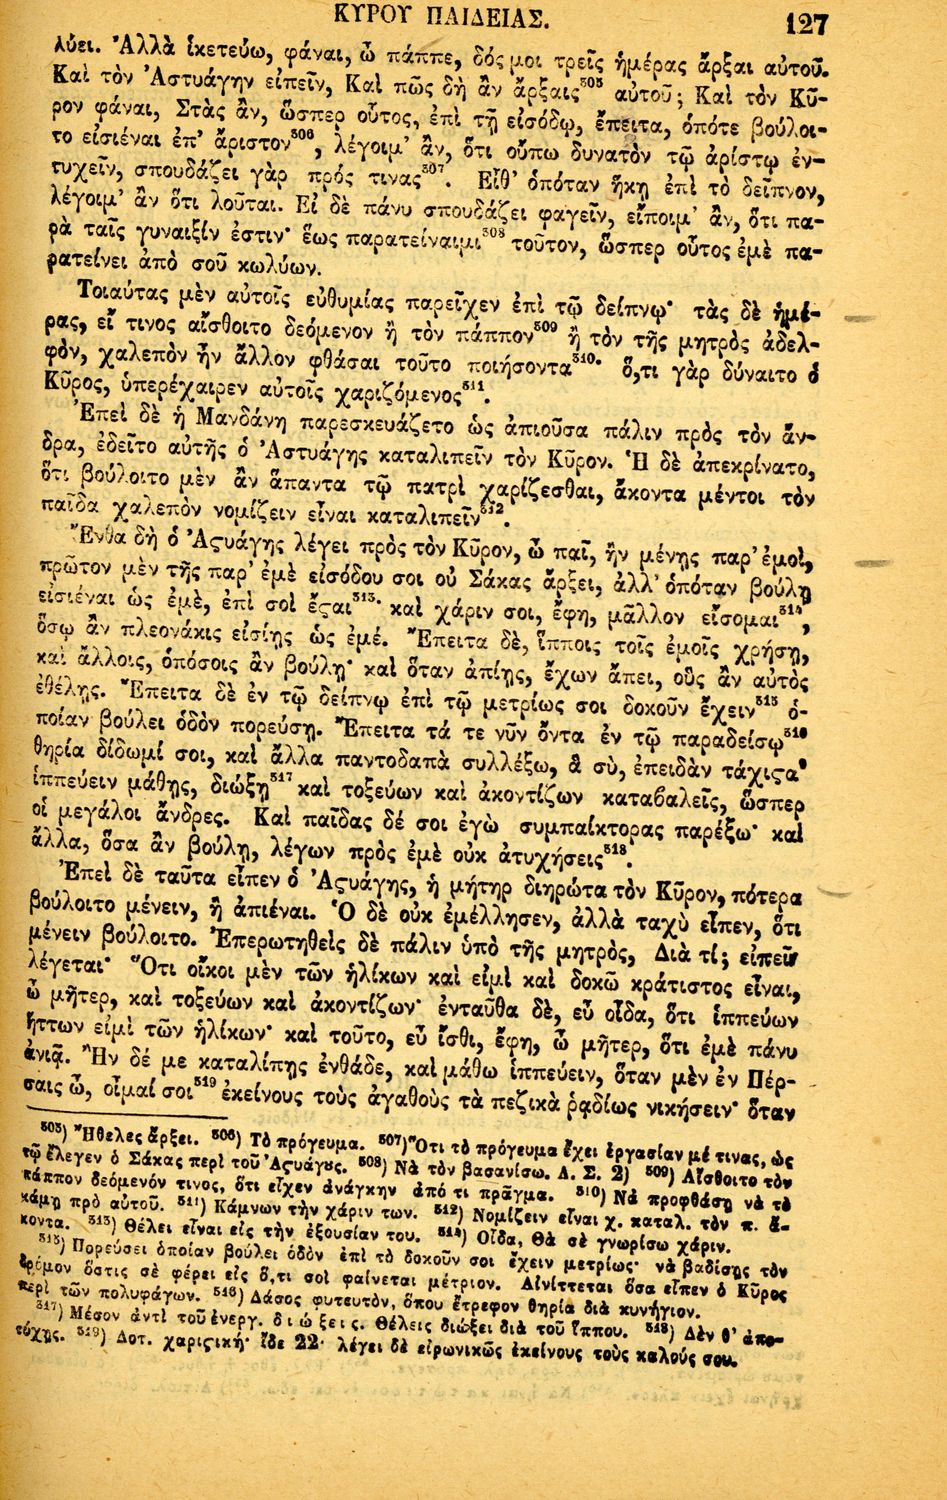 ΚΥΡΟΥ ΠΑΙΔΕΙΑΣ. 127
λύει. Ἀλλὰ ἱκετεύω, φάναι, ὦ πάππε, δός μοι τρεῖς ἡμέρας ἄρξαι αὐτοῦ.
Καὶ τὸν Ἀστυάγην εἰπεῖν, Καὶ πῶς δὴ ἂν ἄρξαις⁵⁰⁵ αὐτοῦ; Καὶ τὸν Κῦ-
ρον φάναι, Στὰς ἂν, ὥσπερ οὗτος, ἐπὶ τῇ εἰσόδῳ, ἔπειτα, ὁπότε βούλοι-
το εἰσιέναι ἐπ' ἄριστον⁵⁰⁶, λέγοιμ' ἂν, ὅτι οὔπω δυνατὸν τῷ ἀρίστῳ ἐν-
τυχεῖν, σπουδάζει γὰρ πρός τινας⁵⁰⁷. Εἶθ' ὁπόταν ἥκῃ ἐπὶ τὸ δεῖπνον,
λέγοιμ' ἂν ὅτι λοῦται. Εἰ δὲ πάνυ σπουδάζει φαγεῖν, εἴποιμ' ἂν, ὅτι πα-
ρὰ ταῖς γυναιξίν ἐστιν· ἕως παρατείναιμι⁵⁰⁸ τοῦτον, ὥσπερ οὗτος ἐμὲ πα-
ρατείνει ἀπὸ σοῦ κωλύων.
Τοιαύτας μὲν αὐτοῖς εὐθυμίας παρεῖχεν ἐπὶ τῷ δείπνῳ· τὰς δὲ ἡμέ-
ρας, εἴ τινος αἴσθοιτο δεόμενον ἢ τὸν πάππον⁵⁰⁹ ἢ τὸν τῆς μητρὸς ἀδελ-
φὸν, χαλεπὸν ἦν ἄλλον φθάσαι τοῦτο ποιήσοντα⁵¹⁰· ὅ,τι γὰρ δύναιτο ὁ
Κῦρος, ὑπερέχαιρεν αὐτοῖς χαριζόμενος⁵¹¹.
Ἐπεὶ δὲ ἡ Μανδάνη παρεσκευάζετο ὡς ἀπιοῦσα πάλιν πρὸς τὸν ἄν-
δρα, ἐδεῖτο αὐτῆς ὁ Ἀστυάγης καταλιπεῖν τὸν Κῦρον. Ἡ δὲ ἀπεκρίνατο,
ὅτι βούλοιτο μὲν ἂν ἅπαντα τῷ πατρὶ χαρίζεσθαι, ἄκοντα μέντοι τὸν
παῖδα χαλεπὸν νομίζειν εἶναι καταλιπεῖν⁵¹².
Ἔνθα δὴ ὁ Ἀϛυάγης λέγει πρὸς τὸν Κῦρον, ὦ παῖ, ἢν μένῃς παρ' ἐμοὶ,
πρῶτον μὲν τῆς παρ' ἐμὲ εἰσόδου σοι οὐ Σάκας ἄρξει, ἀλλ' ὁπόταν βούλῃ
εἰσιέναι ὡς ἐμὲ, ἐπὶ σοὶ ἔϛαι⁵¹³· καὶ χάριν σοι, ἔφη, μᾶλλον εἴσομαι⁵¹⁴,
ὅσῳ ἂν πλεονάκις εἰσίῃς ὡς ἐμέ. Ἔπειτα δὲ, ἵπποις τοῖς ἐμοῖς χρήσῃ,
καὶ ἄλλοις, ὁπόσοις ἂν βούλῃ· καὶ ὅταν ἀπίῃς, ἔχων ἄπει, οὓς ἂν αὐτὸς
ἐθέλῃς. Ἔπειτα δὲ ἐν τῷ δείπνῳ ἐπὶ τῷ μετρίως σοι δοκοῦν ἔχειν⁵¹⁵ ὁ-
ποίαν βούλει ὁδὸν πορεύσῃ. Ἔπειτα τά τε νῦν ὄντα ἐν τῷ παραδείσῳ⁵¹⁶
θηρία δίδωμί σοι, καὶ ἄλλα παντοδαπὰ συλλέξω, ἃ σὺ, ἐπειδὰν τάχιϛα
ἱππεύειν μάθῃς, διώξῃ⁵¹⁷ καὶ τοξεύων καὶ ἀκοντίζων καταβαλεῖς, ὥσπερ
οἱ μεγάλοι ἄνδρες. Καὶ παῖδας δέ σοι ἐγὼ συμπαίκτορας παρέξω· καὶ
ἄλλα, ὅσα ἂν βούλῃ, λέγων πρὸς ἐμὲ οὐκ ἀτυχήσεις⁵¹⁸.
Ἐπεὶ δὲ ταῦτα εἶπεν ὁ Ἀϛυάγης, ἡ μήτηρ διηρώτα τὸν Κῦρον, πότερα
βούλοιτο μένειν, ἢ ἀπιέναι. Ὁ δὲ οὐκ ἐμέλλησεν, ἀλλὰ ταχὺ εἶπεν, ὅτι
μένειν βούλοιτο. Ἐπερωτηθεὶς δὲ πάλιν ὑπὸ τῆς μητρὸς, Διὰ τί; εἰπεῖν
λέγεται· Ὅτι οἴκοι μὲν τῶν ἡλίκων καὶ εἰμὶ καὶ δοκῶ κράτιστος εἶναι,
ὦ μῆτερ, καὶ τοξεύων καὶ ἀκοντίζων· ἐνταῦθα δὲ, εὖ οἶδα, ὅτι ἱππεύων
ἥττων εἰμὶ τῶν ἡλίκων· καὶ τοῦτο, εὖ ἴσθι, ἔφη, ὦ μῆτερ, ὅτι ἐμὲ πάνυ
ἀνιᾷ. Ἢν δέ με καταλίπῃς ἐνθάδε, καὶ μάθω ἱππεύειν, ὅταν μὲν ἐν Πέρ-
σαις ὦ, οἶμαί σοι⁵¹⁹ ἐκείνους τοὺς ἀγαθοὺς τὰ πεζικὰ ῥᾳδίως νικήσειν· ὅταν
⁵⁰⁵) Ἤθελες ἄρξει. ⁵⁰⁶) Τὸ πρόγευμα. ⁵⁰⁷) Ὅτι τὸ πρόγευμα ἔχει ἐργασίαν μέ τινας, ὡς
τῷ ἔλεγεν ὁ Σάκας περὶ τοῦ Ἀϛυάγους. ⁵⁰⁸) Νὰ τὸν βασανίσω. Λ. Σ. 2) ⁵⁰⁹) Αἴσθοιτο τὸν
πάππον δεόμενόν τινος, ὅτι εἶχεν ἀνάγκην ἀπό τι πρᾶγμα. ⁵¹⁰) Νὰ προφθάσῃ νὰ τὸ
κάμῃ πρὸ αὐτοῦ. ⁵¹¹) Κάμνων τὴν χάριν των. ⁵¹²) Νομίζειν εἶναι χ. καταλ. τὸν π. ἄ-
κοντα. ⁵¹³) Θέλει εἶναι εἰς τὴν ἐξουσίαν του. ⁵¹⁴) Οἶδα, Θὰ σὲ γνωρίσω χάριν.
⁵¹⁵) Πορεύσει ὁποίαν βούλει ὁδὸν ἐπὶ τὸ δοκοῦν σοι ἔχειν μετρίως· νὰ βαδίσῃς τὸν
δρόμον ὅστις σὲ φέρει εἰς ὅ,τι σοὶ φαίνεται μέτριον. Αἰνίττεται ὅσα εἶπεν ὁ Κῦρος
περὶ τῶν πολυφάγων. ⁵¹⁶) Δάσος φυτευτὸν, ὅπου ἔτρεφον θηρία διὰ κυνήγιον.
⁵¹⁷) Μέσον ἀντὶ τοῦ ἐνεργ. διώξεις. Θέλεις διώξει διὰ τοῦ ἵππου. ⁵¹⁸) Δὲν θ' ἀπο-
τύχῃς. ⁵¹⁹) Δοτ. χαριϛική· ἴδε 22· λέγει δὲ εἰρωνικῶς ἐκείνους τοὺς καλούς σου.